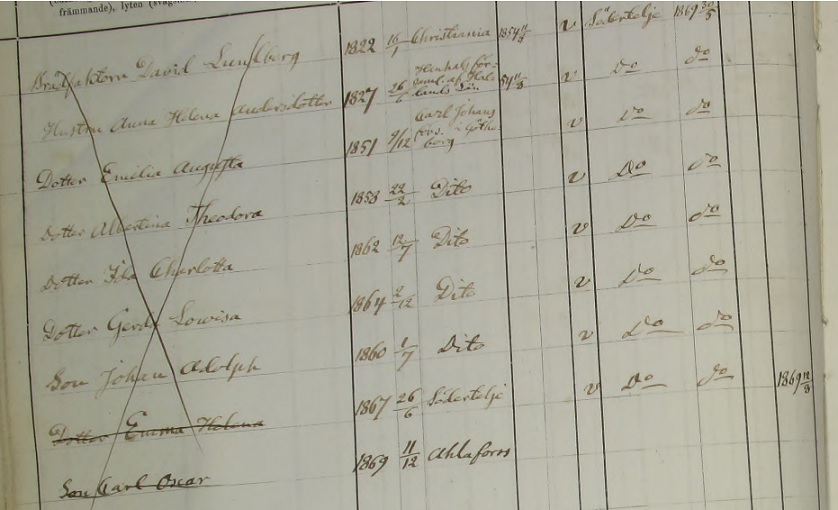 främmande), lyten (svagsin
Bradfaktorn David Lundberg 1822 16/1 Christiania 1854 v Södertelje 1869 30/5
Hustru Anna Helena Andersdotter 1827 26 v Do do
Dotter Emilia Augusta 1851 9/12 Carl Johans förs. i Götheborg v Do do
Dotter Albertina Theodora 1858 22/2 Dito v Do do
Dotter Ida Charlotta 1862 12/7 Dito v Do do
Dotter Gerda Lowisa 1864 2/12 Dito v Do do
Son Johan Adolph 1860 1/7 Dito v Do do
Dotter Emma Helena 1867 26/6 Södertelje v Do do 1869 12/9
Son Carl Oscar 1869 11/12 Ahlafors